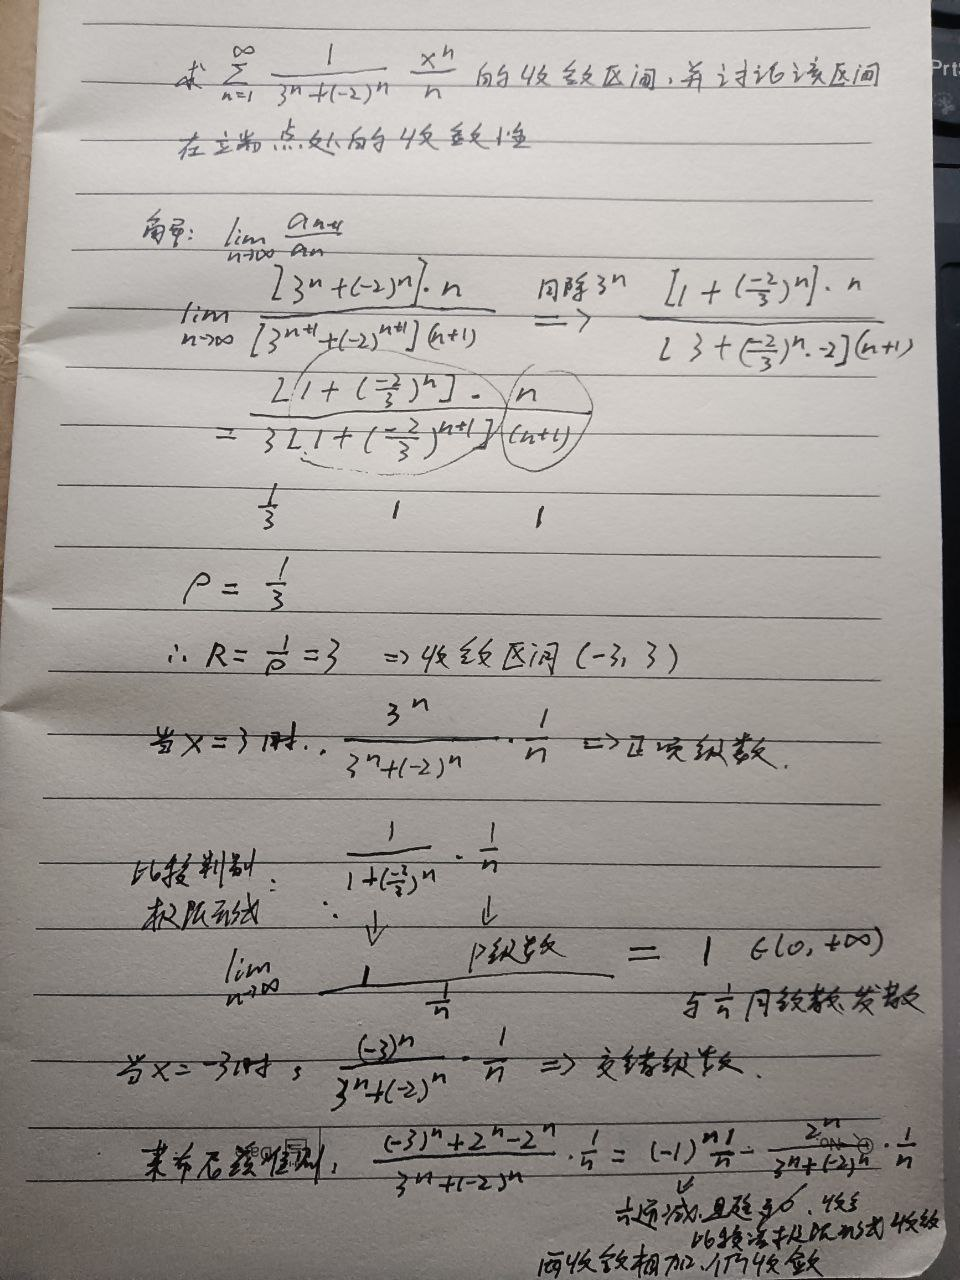 求 ∞∑n=1 1/(3^n+(-2)^n) x^n/n 的收敛区间，并讨论该区间
在立端点处的收敛性
解： lim n→∞ a_{n+1}/a_n
lim n→∞ [3^n+(-2)^n]·n / [3^{n+1}+(-2)^{n+1}](n+1) 同除3^n => [1+(-2/3)^n]·n / [3+(-2/3)^n·-2](n+1)
= [1+(-2/3)^n]·n / 3[1+(-2/3)^{n+1}](n+1)
1/3 1 1
ρ = 1/3
∴ R = 1/ρ = 3 => 收敛区间 (-3, 3)
当x=3时.. 3^n/(3^n+(-2)^n) · 1/n => 正项级数.
比较判别 : 1/(1+(-2/3)^n) · 1/n
极限形式 : ↓ ↓
lim n→∞ 1 P级数 / 1/n = 1 ∈(0, +∞)
与 1/n 同敛散.发散
当x=-3时, (-3)^n/(3^n+(-2)^n) · 1/n => 交错级数.
莱布尼 准则, ((-3)^n+2^n-2^n)/(3^n+(-2)^n) · 1/n = (-1)^n 1/n - 2^n/(3^n+(-2)^n) · 1/n
递减.且趋于0.收敛
比较法极限形式收敛
两收敛相加,仍收敛
PrtS